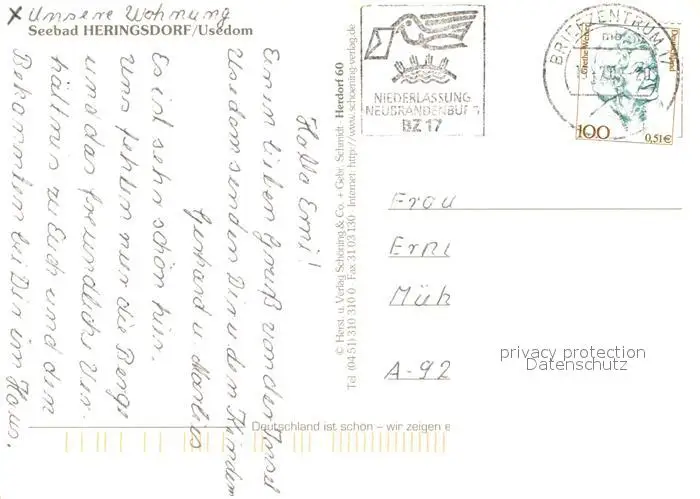 x Unsere Wohnung
Seebad HERINGSDORF/Usedom
Hallo Erni!
Einen lieben Gruß von der Insel
Usedom senden Dir u den Kindern
Gerhard u. Marlies
Es ist sehr schön hier.
Uns fehlen nur die Berge
und das freundliche Ver-
hältnis zu Euch und den
Bekannten bei Dir im Haus.
© Herst. u. Verlag Schöning & Co. + Gebr. Schmidt. Herdorf 60
Tel. (04 51) 310 310 0 · Fax 31 03 130 · Internet: http://www.schoening-verlag.de
NIEDERLASSUNG
NEUBRANDENBURG
BZ 17
BRIEFZENTRUM 17
Grethe Weiser
Deutschland
100
0,51€
Frau
Erni
Müh
A-92
privacy protection
Datenschutz
Deutschland ist schön – wir zeigen e